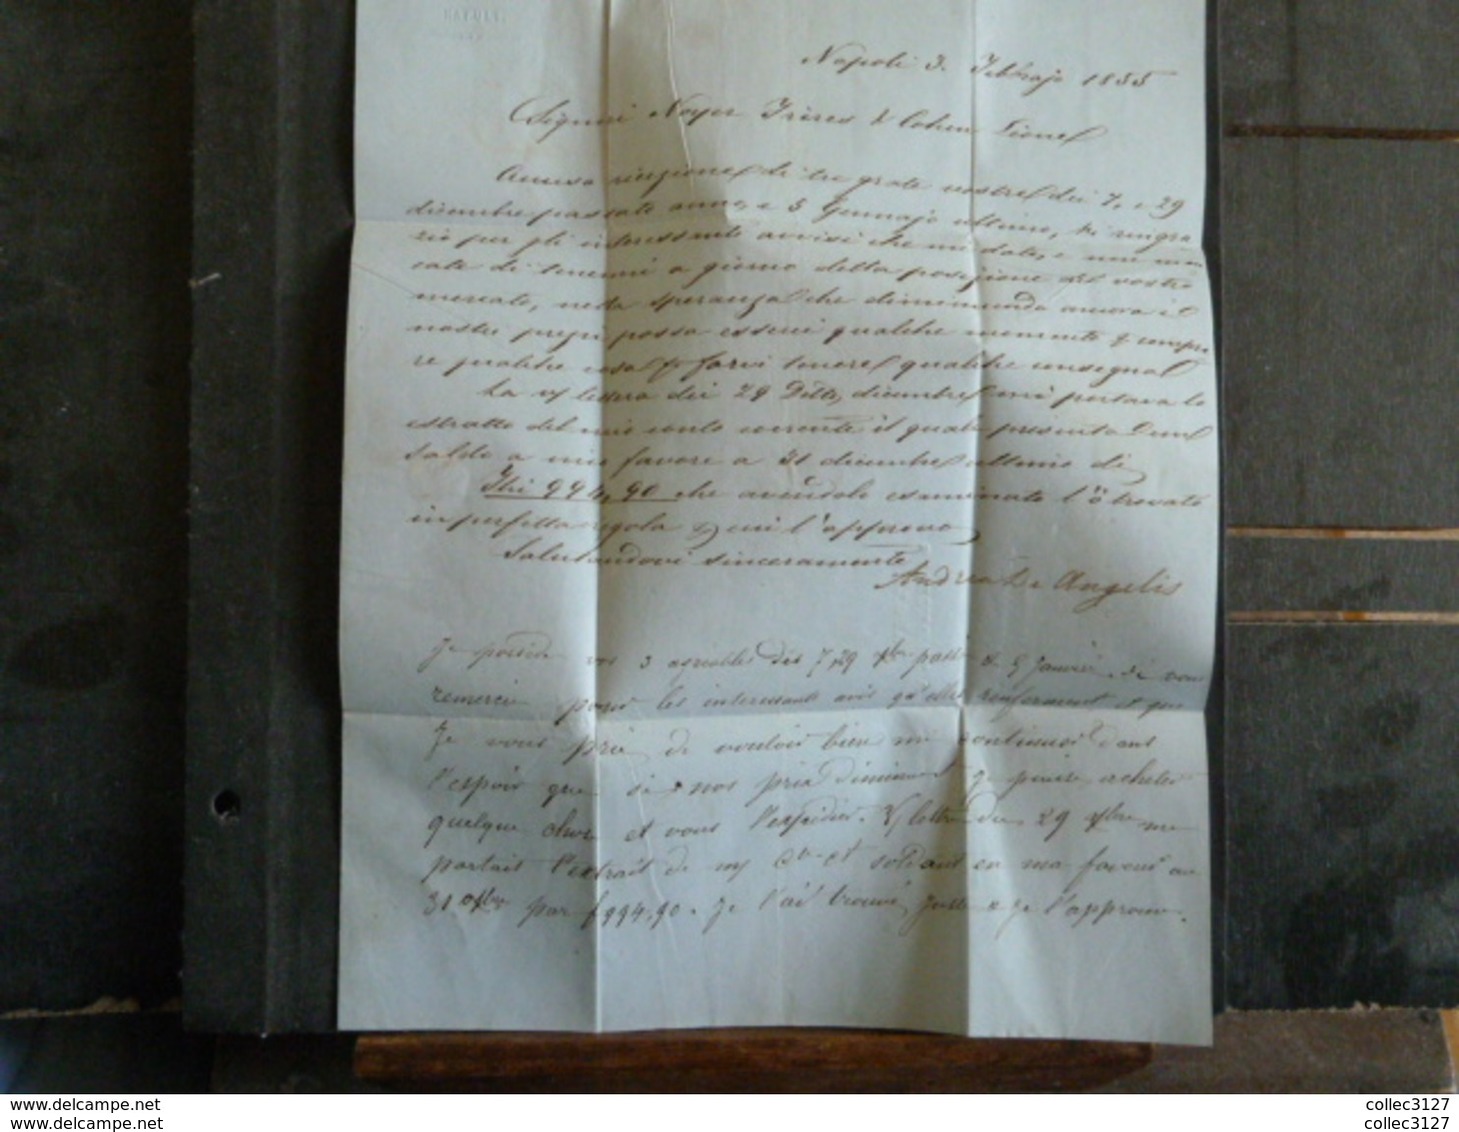 NAPOLI.
Napoli 3. Febbrajo 1855
Signori Noyer Frères & Cohen Lionel
Accuso ricezione di tre grate vostre dei 7, e 29
dicembre passato anno, e 5 Gennajo ultimo, vi ringra
zio per gli interessanti avvisi che mi date, e non man
cate di tenermi a giorno della posizione del vostro
mercato, nella speranza che diminuendo ancora i
nostri prezzi possa esservi qualche momento di compra
re qualche cosa & farvi tenere qualche consegna
La vs lettera dei 29 Detto, dicembre mi portava lo
estratto del mio conto corrente il quale presenta un
saldo a mio favore a 31 dicembre ultimo di
994,90 che avendolo esaminato l'ò trovato
in perfetta regola & cui l'approvo
Salutandovi sinceramente
Andrea De Angelis
Je possède vos 3 agréables des 7, 29 Xbre passé & 5 Janvier. Je vous
remercie pour les interessants avis qu'elles renferment et que
Je vous prie de vouloir bien me continuer dans
l'espoir que si nos prix diminuent je puisse acheter
quelque chose et vous l'expédier. V/ lettre du 29 Xbre me
portait l'extrait de m/ Cte Ct soldant en ma faveur au
31 Xbre par f 994,90. Je l'ai trouvé juste & je l'approuve.
delcampe.net collec3127
delcampe.net collec3127